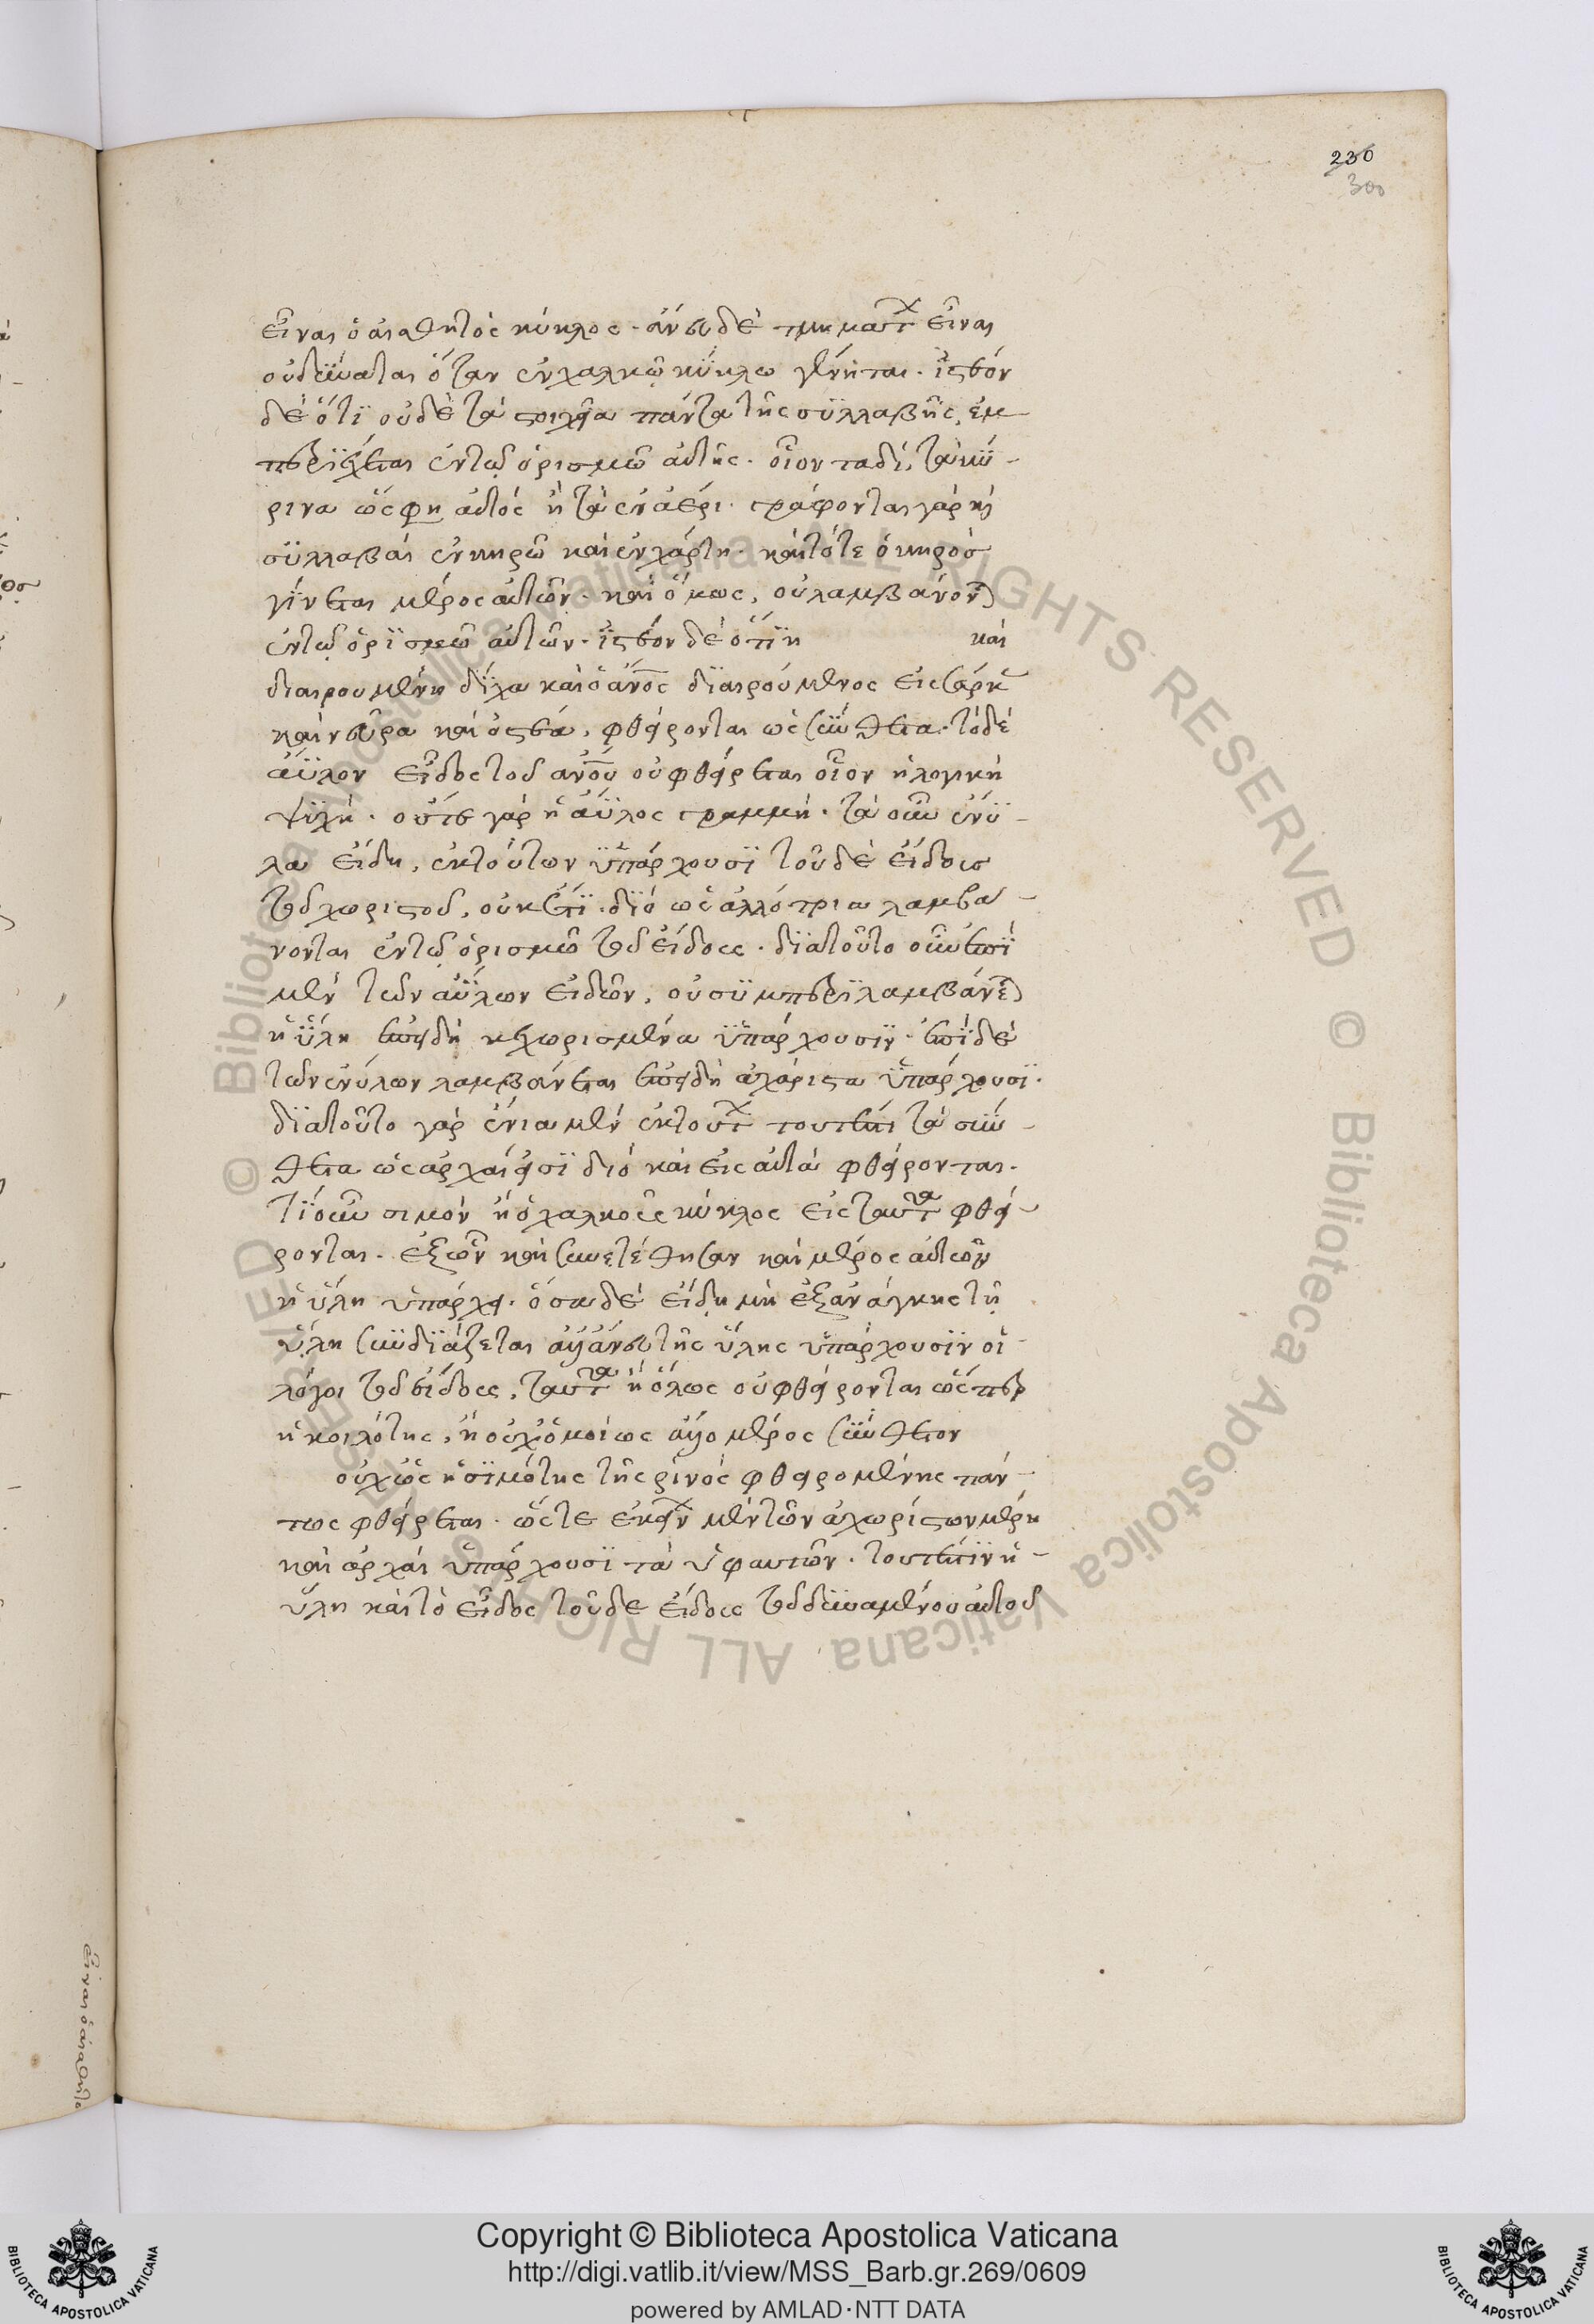 230
300
εἶναι ὁ αἰσθητὸς κύκλος. ἄνευ δὲ τμημάτων εἶναι
οὐ δύναται ὅταν ἐν χαλκῷ κύκλω γένηται. ἰστέον
δὲ ὅτι οὐδὲ τὰ στοιχεῖα πάντα τῆς συλλαβῆς, ἐμ-
περιέχεται ἐν τῷ ὁρισμῶ αὐτῆς. οἷον ταδὶ, τὰ κύ-
ρινα ὥς φη αὐτὸς ἢ τὰ ἐν ἀέρι. γράφονται γὰρ καὶ
συλλαβαὶ ἐν κηρῶ καὶ ἐν χάρτη. καὶ τότε ὁ κηρὸς
γίνεται μέρος αὐτῶν. καὶ ὅμως, οὐ λαμβάνονται
ἐν τῷ ὁρισμῶ αὐτῶν. ἰστέον δὲ ὅτι ἡ καὶ
διαιρουμένη δίχα καὶ ὁ ἄνος διαιρούμενος εἰς σάρκα
καὶ νεῦρα καὶ ὀστέα, φθείρονται ὡς σύνθετα. τὸ δὲ
ἄϋλον εἶδος τοῦ ἀνου οὐ φθείρεται οἷον ἡ λογικὴ
ψυχή. οὔτε γὰρ ἡ ἄϋλος γραμμή. τὰ οὖν ἐνύ-
λα εἴδη, ἐκ τούτων ὑπάρχουσι τοῦ δὲ εἴδους
τοῦ χωριστοῦ, οὐκέτι. διὸ ὡς ἀλλότρια λαμβά-
νονται ἐν τῷ ὁρισμῶ τοῦ εἴδους. διὰ τοῦτο οὖν ἐπὶ
μὲν τῶν ἀΰλων εἰδῶν, οὐ συμπεριλαμβάνεται
ἡ ὕλη ἐπειδὴ κεχωρισμένα ὑπάρχουσιν. ἐπὶ δὲ
τῶν ἐνύλων λαμβάνεται ἐπειδὴ ἀχώριστα ὑπάρχουσι.
διὰ τοῦτο γὰρ ἔνια μὲν ἐκ τούτων τουτέστι τὰ σύν-
θετα ὡς ἀρχαὶ εἰσὶ διὸ καὶ εἰς αὐτὰ φθείρονται.
τὸ οὖν σιμὸν ἢ ὁ χαλκοῦς κύκλος εἰς ταῦτα φθεί-
ρονται. ἐξ ὧν καὶ συνετέθησαν καὶ μέρος αὐτῶν
ἡ ὕλη ὑπάρχει. ὅσα δὲ εἴδη μὴ ἐξ ἀνάγκης τῇ
ὕλη συνδιάζεται ἀλλ' ἄνευ τῆς ὕλης ὑπάρχουσιν οἱ
λόγοι τοῦ εἴδους, ταῦτα ἢ ὅλως οὐ φθείρονται ὥσπερ
ἡ κοιλότης, ἢ οὐχ ὁμοίως ἀλλο μέρος σύνθετον
οὐχ ὡς ἡ σιμότης τῆς ῥινὸς φθειρομένης πάν-
τως φθείρεται. ὥστε ἐκείνων μὲν τῶν ἀχωρίστων μέρη
καὶ ἀρχαὶ ὑπάρχουσι τὰ ὑφ αὑτῶν. τουτέστιν ἡ
ὕλη καὶ τὸ εἶδος τοῦ δὲ εἴδους τοῦ δυναμένου αὐτοῦ
εἶναι ὁ αἰσθητὸ
© Biblioteca Apostolica Vaticana ALL RIGHTS RESERVED © Biblioteca Apostolica Vaticana ALL RIGHTS RESERVED
Copyright © Biblioteca Apostolica Vaticana
http://digi.vatlib.it/view/MSS_Barb.gr.269/0609
powered by AMLAD·NTT DATA
BIBLIOTECA APOSTOLICA VATICANA
BIBLIOTECA APOSTOLICA VATICANA